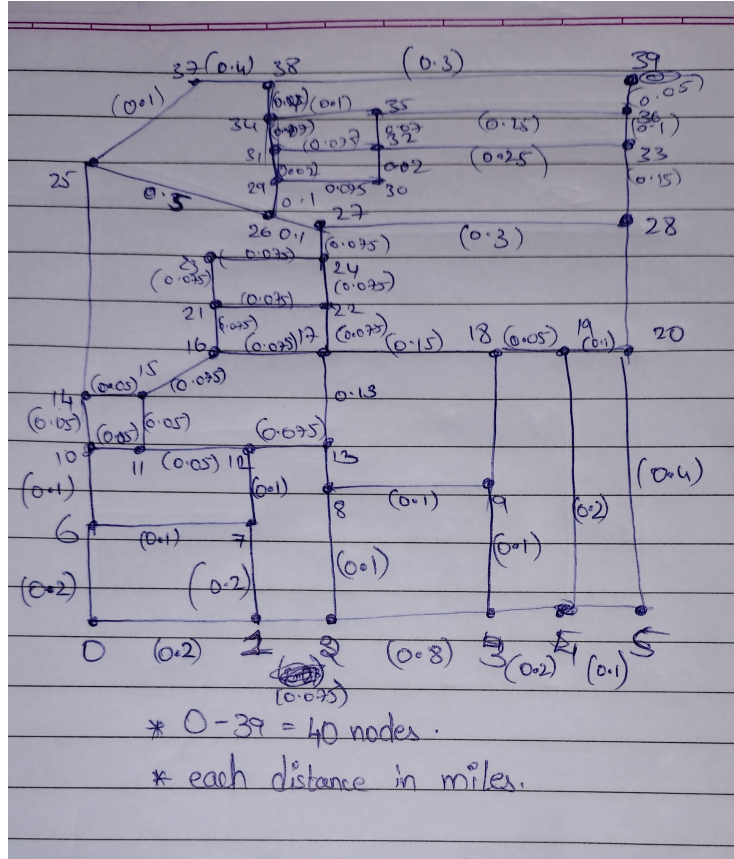 37 (0.4) 38 (0.3) 39
(0.1) (0.05)
(0.1) 35
34 (0.25) 36
(0.1)
31 (0.075) 32 (0.25) 33
0.07
25 (0.02) 0.02 (0.15)
29 0.075 30
0.5 0.1
26 0.1 27 28
(0.075) (0.3)
23 (0.075) 24
(0.075) (0.075)
21 (0.075) 22
(0.075) (0.075)
16 (0.075) 17 (0.15) 18 (0.05) 19 (0.1) 20
15
14 (0.05) (0.075) 0.13
(0.05) (0.05) (0.05)
10 11 (0.05) 12 (0.075) 13
(0.1) (0.1) 8 (0.1) 9 (0.2) (0.4)
6 (0.1) 7
(0.2) (0.2) (0.1) (0.1)
0 (0.2) 1 2 (0.8) 3 (0.2) 4 (0.1) 5
(0.075)
* 0-39 = 40 nodes.
* each distance in miles.